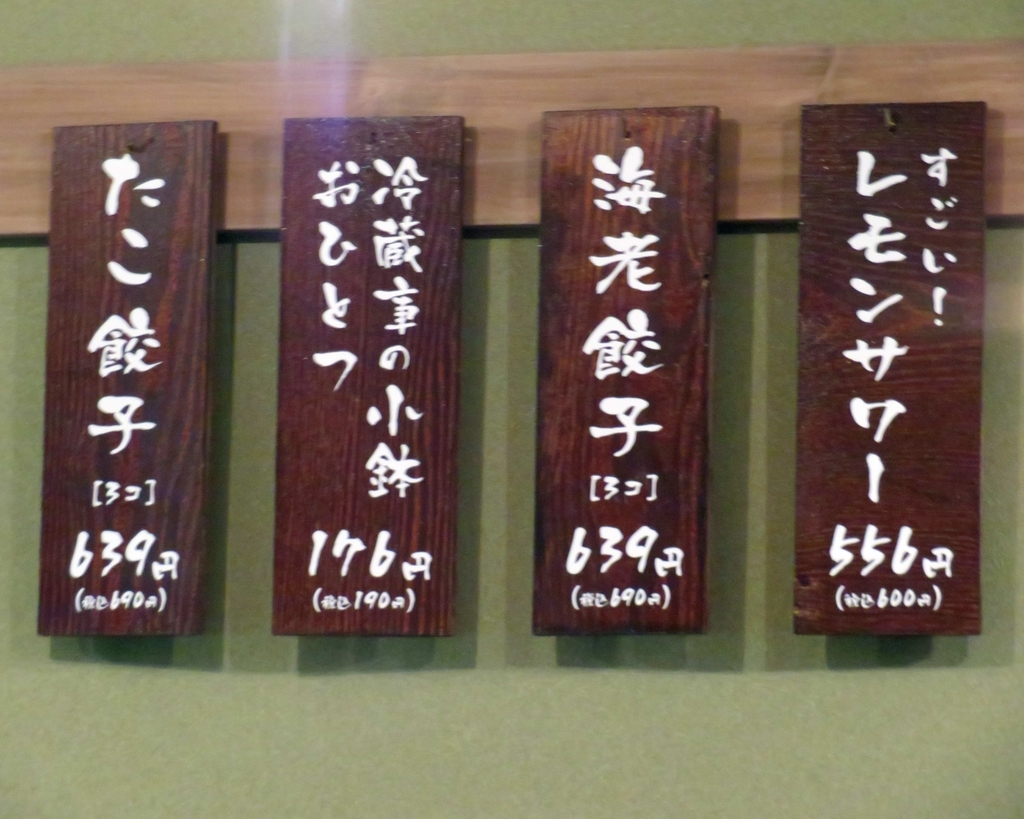 すごい!
レモンサワー
556円
(税込600円)
海老餃子
[3コ]
639円
(税込690円)
冷蔵事の小鉢
おひとつ
176円
(税込190円)
たこ餃子
[3コ]
639円
(税込690円)